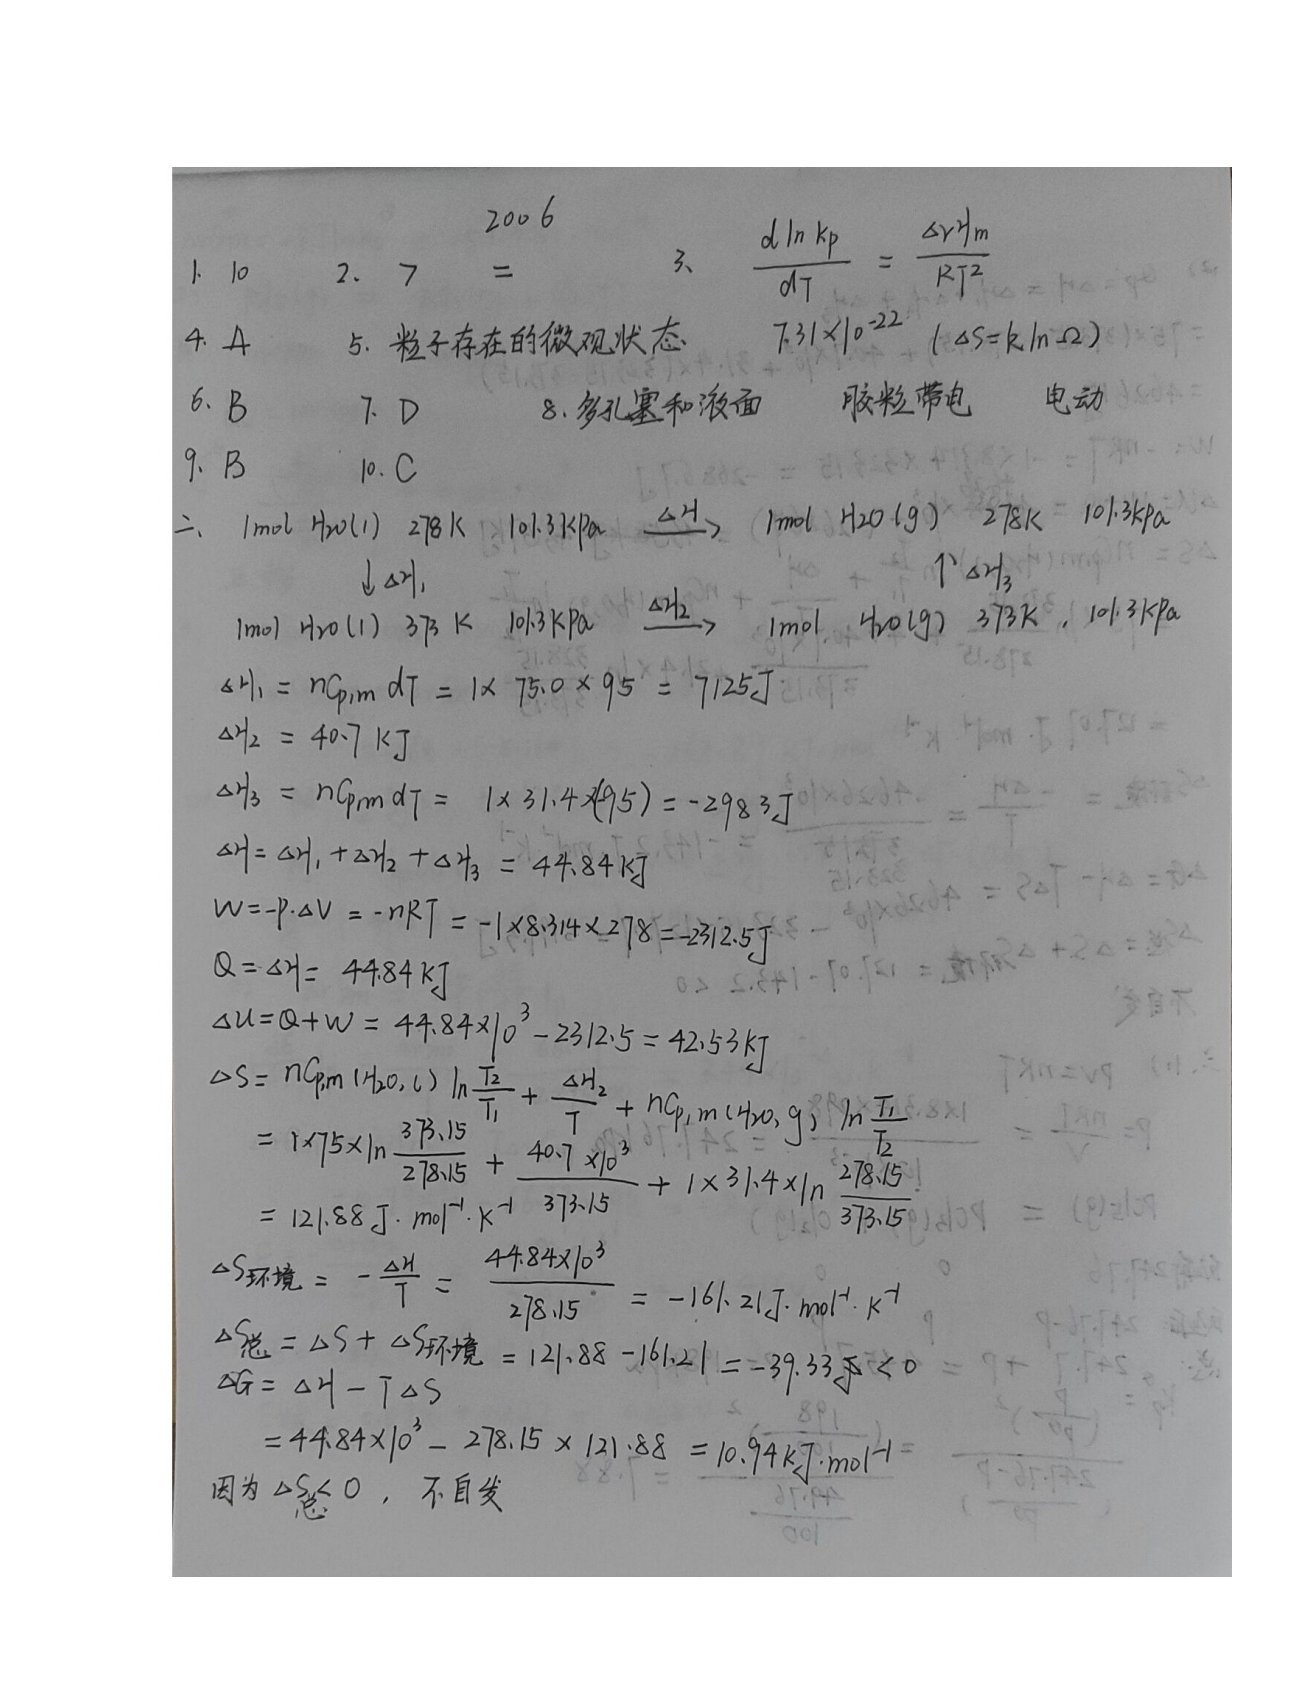 2006
1. 10 2. > = 3、 d ln Kp / dT = ΔrHm / RT²
4. A 5. 粒子存在的微观状态 7.31×10⁻²² (ΔS=k lnΩ)
6. B 7. D 8. 多孔塞和液面 胶粒带电 电动
9. B 10. C
二、 1mol H2O(l) 278K 101.3kPa —ΔH→ 1mol H2O(g) 278K 101.3kPa
↓ΔH₁ ↑ΔH₃
1mol H2O(l) 373K 101.3kPa —ΔH₂→ 1mol H2O(g) 373K, 101.3kPa
ΔH₁ = nCp,m dT = 1×75.0×95 = 7125J
ΔH₂ = 40.7 KJ
ΔH₃ = nCp,m dT = 1×31.4×(-95) = -2983J
ΔH = ΔH₁ + ΔH₂ + ΔH₃ = 44.84KJ
W = -P·ΔV = -nRT = -1×8.314×278 = -2312.5J
Q = ΔH = 44.84KJ
ΔU = Q+W = 44.84×10³ - 2312.5 = 42.53KJ
ΔS = nCp,m(H2O, l) ln T₂/T₁ + ΔH₂/T + nCp,m(H2O, g) ln T₁/T₂
= 1×75×ln 373.15/278.15 + 40.7×10³/373.15 + 1×31.4×ln 278.15/373.15
= 121.88 J·mol⁻¹·K⁻¹
ΔS环境 = -ΔH/T = 44.84×10³/278.15 = -161.21J·mol⁻¹·K⁻¹
ΔS总 = ΔS + ΔS环境 = 121.88 - 161.21 = -39.33J < 0
ΔG = ΔH - TΔS
= 44.84×10³ - 278.15×121.88 = 10.94KJ·mol⁻¹
因为 ΔS总 < 0, 不自发